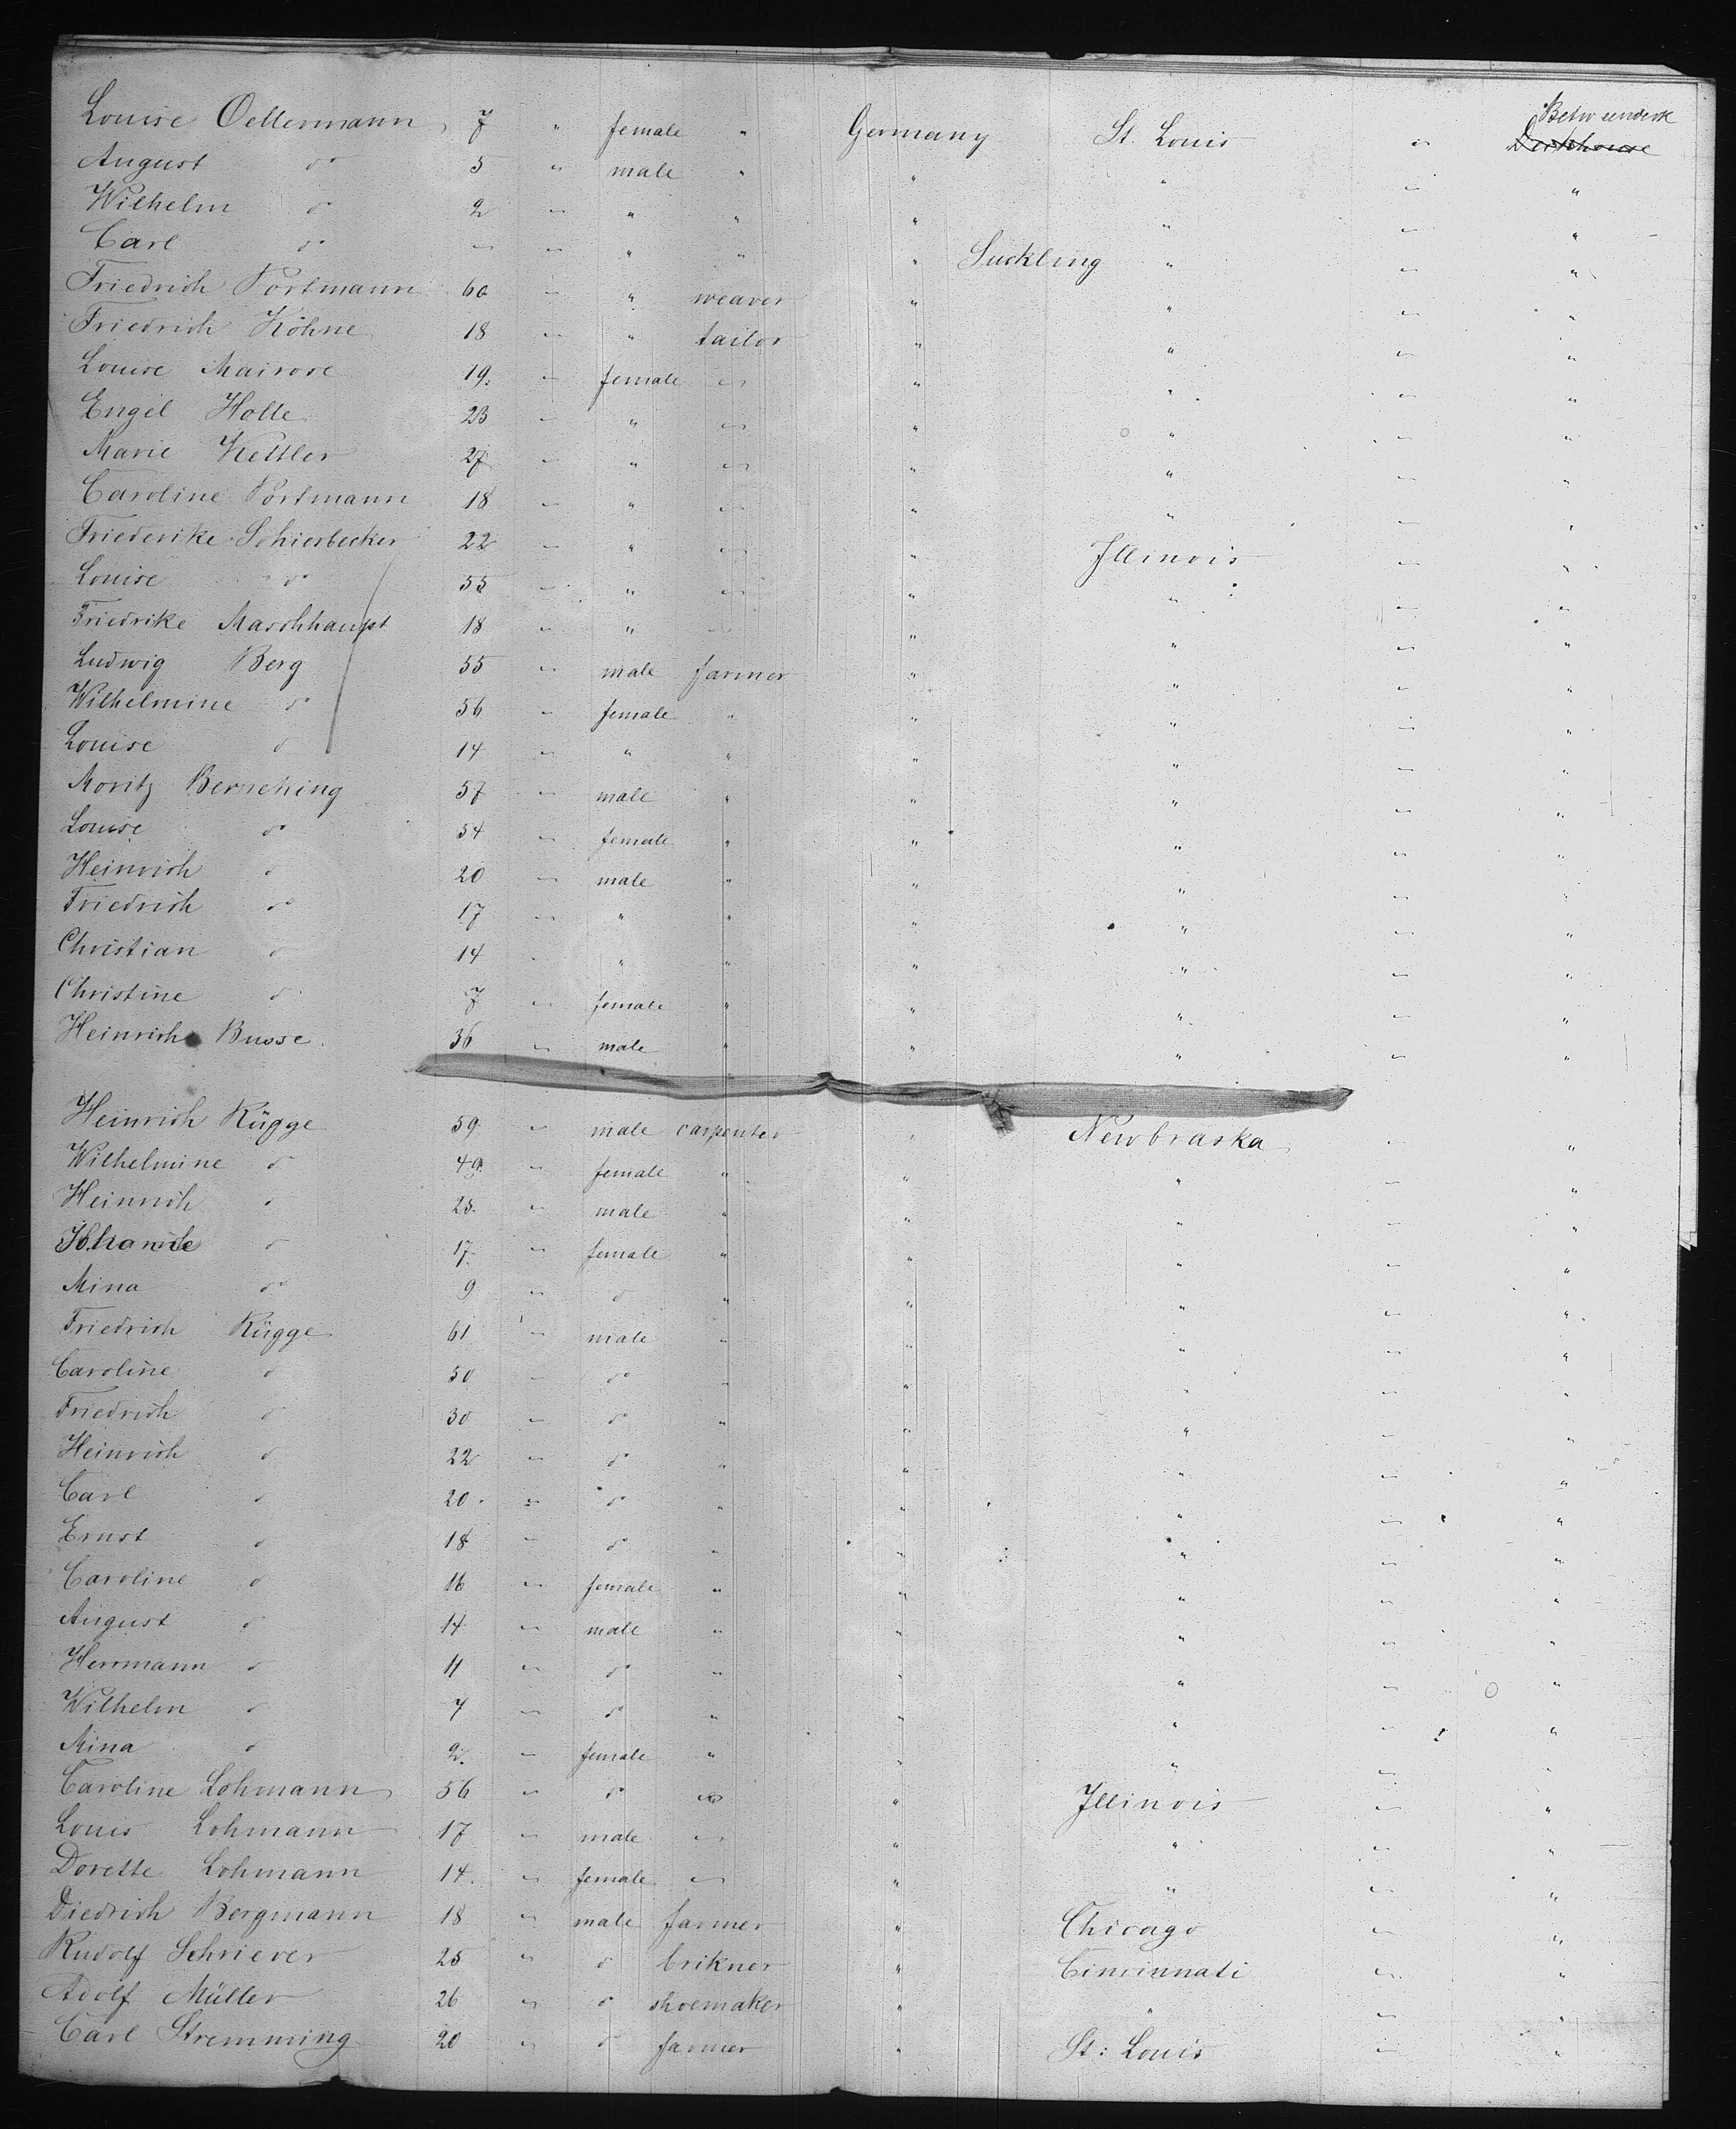 Louise Oellermann 7 " female " Germany St. Louis " Betw underk
Deckhouse
August do 5 " male " " " " "
Wilhelm do 2 " " " " " " "
Carl do " " " " " Suckling " " "
Friedrich Portmann 60 " " weaver " " " "
Friedrich Köhne 18 " " tailor " " " "
Louise Mairose 19. " female " " " " "
Engel Holle 23 " " " " " " "
Marie Kettler 27 " " " " " " "
Caroline Portmann 18 " " " " " " "
Friederike Schierbecker 22 " " " " Illinois " "
Louise do 55 " " " " " " "
Friedrike Maschhaupt 18 " " " " " " "
Ludwig Berg 55 " male farmer " " " "
Wilhelmine do 56 " female " " " " "
Louise do 14 " " " " " " "
Moritz Bensching 57 " male " " " " "
Louise do 54 " female " " " " "
Heinrich do 20 " male " " " " "
Friedrich do 17 " " " " " " "
Christian do 14 " " " " " " "
Christine do 7 " female " " " " "
Heinrich Busse 36 " male " " " " "
Heinrich Rügge 59 " male carpenter " Newbraska " "
Wilhelmine do 49 " female " " " " "
Heinrich do 25. " male " " " " "
do 17. " female " " " " "
Mina do 9 " do " " " " "
Friedrich Rügge 61 " male " " " " "
Caroline do 50 " do " " " " "
Friedrich do 30 " do " " " " "
Heinrich do 22 " do " " " " "
Carl do 20. " do " " " " "
Ernst do 18 " do " " " " "
Caroline do 16 " female " " " " "
August do 14 " male " " " " "
Herrmann do 11 " do " " " " "
Wilhelm do 7 " do " " " " "
Mina do 2. " female " " " " "
Caroline Lohmann 56 " do " " Illinois " "
Louis Lohmann 17 " male " " " " "
Dorette Lohmann 14. " female " " " " "
Diedrich Bergmann 18 " male farmer " Chicago " "
Rudolf Schriever 25 " do brikner " Cincinnati " "
Adolf Müller 26 " do shoemaker " " " "
Carl Stremming 20 " do farmer " St: Louis " "